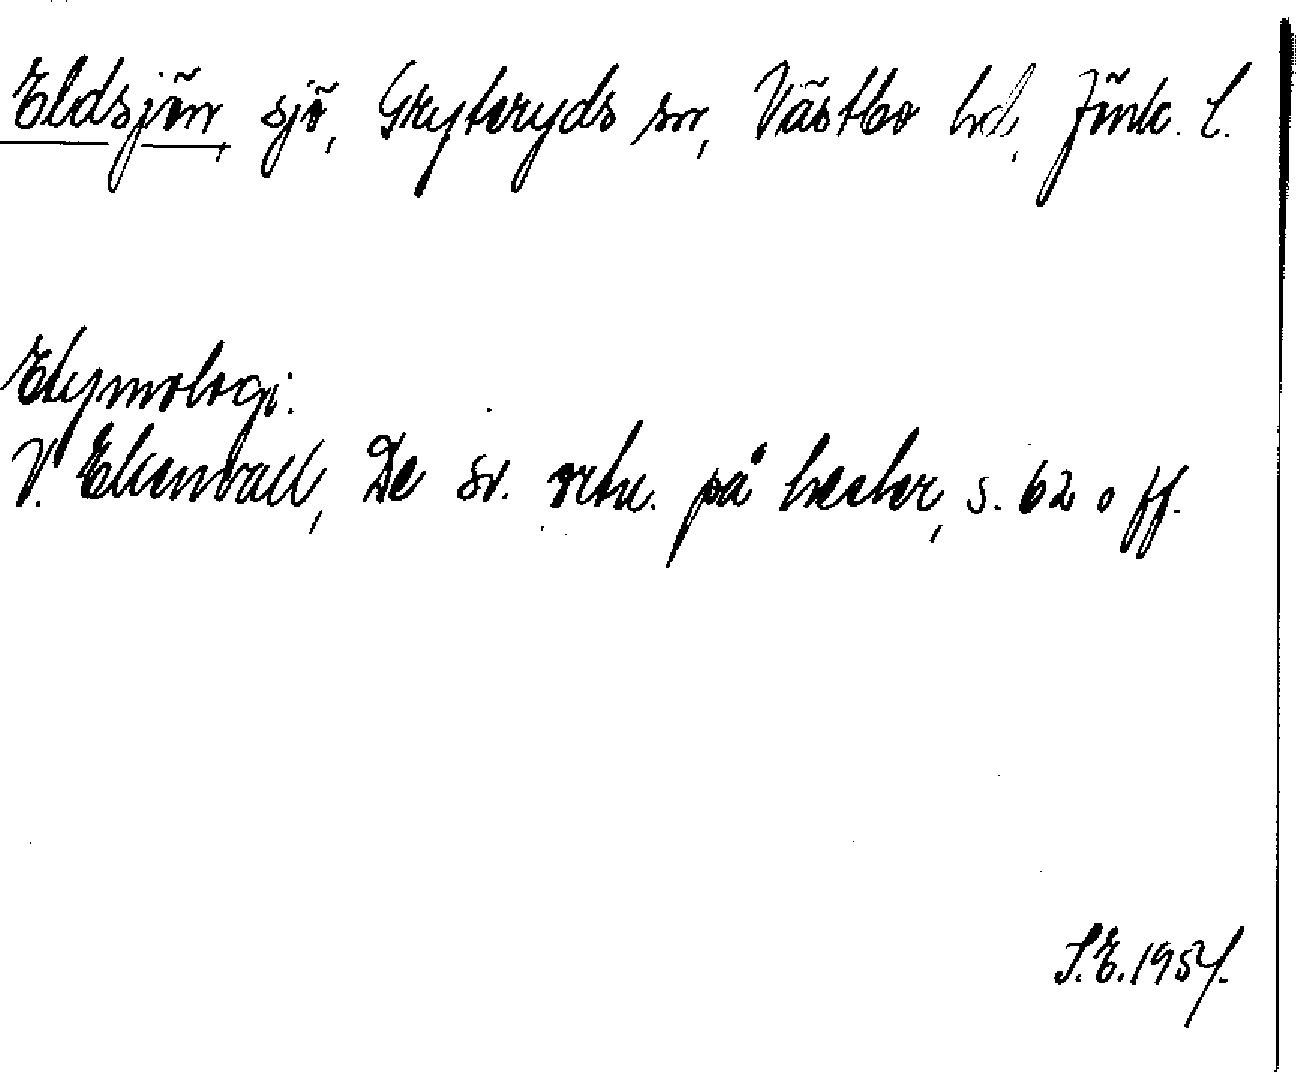 Eldsjön, sjö, Gryteryds sn, Västbo hd, Jönk. l.
Etymologi:
V. Ekenvall, De sv. ortn. på hester, s. 62 o ff.
S.E. 1957.